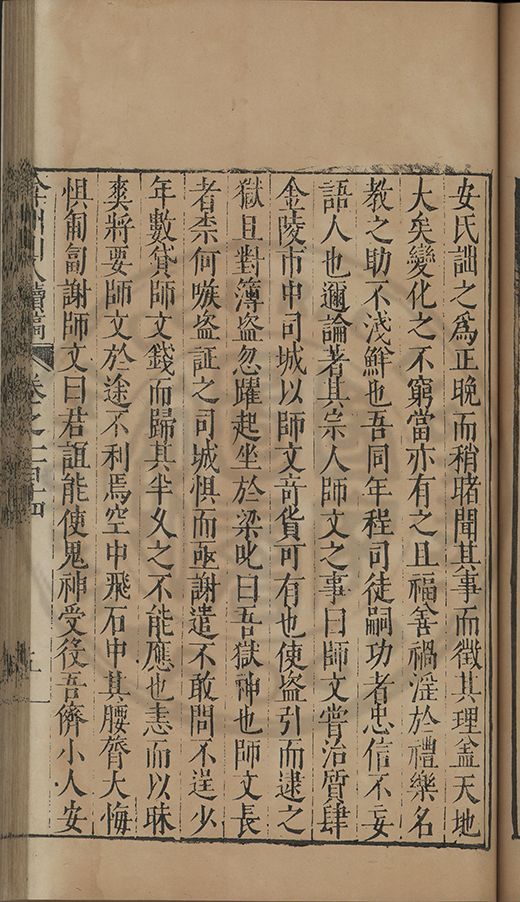 安氏詘之為正晚而稍睹聞其事而徵其理葢天地
大矣變化之不窮當亦有之且福善禍滛於禮樂名
教之助不淺鮮也吾同年程司徒嗣功者忠信不妄
語人也邇論著其宗人師文之事曰師文嘗治質肆
金陵市中司城以師文竒貨可有也使盗引而逮之
獄且對簿盗忽躍起坐於梁叱曰吾獄神也師文長
者柰何嗾盗証之司城惧而亟謝遣不敢問不逞少
年數貸師文錢而歸其半久之不能應也恚而以昧
爽將要師文於途不利焉空中飛石中其腰膂大悔
惧匍匐謝師文曰君誼能使鬼神受役吾儕小人安
弇州山人續稿
卷之一百四十四